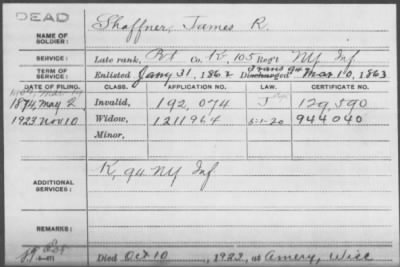 DEAD
NAME OF SOLDIER: Shaffner, James R.
SERVICE: Late rank, Pvt Co. K, 105 Reg't NY Inf
TERM OF SERVICE: Enlisted Jany 31, 1862 Discharged Mar 10, 1863
trans 94
DATE OF FILING. CLASS. APPLICATION NO. LAW. CERTIFICATE NO.
1874, May 2 Invalid, 192,074 J 129,590
1922 Nov 10 Widow, 1211964 5-1-20 944040
Minor,
ADDITIONAL SERVICES: K, 94 NY Inf
REMARKS:
Died Oct 10, 1922, at Amery, Wisc